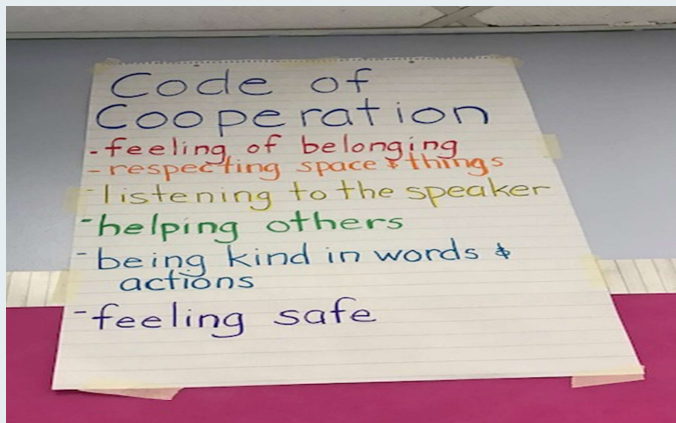 Code of
Cooperation
- feeling of belonging
- respecting space & things
- listening to the speaker
- helping others
- being kind in words &
actions
- feeling safe